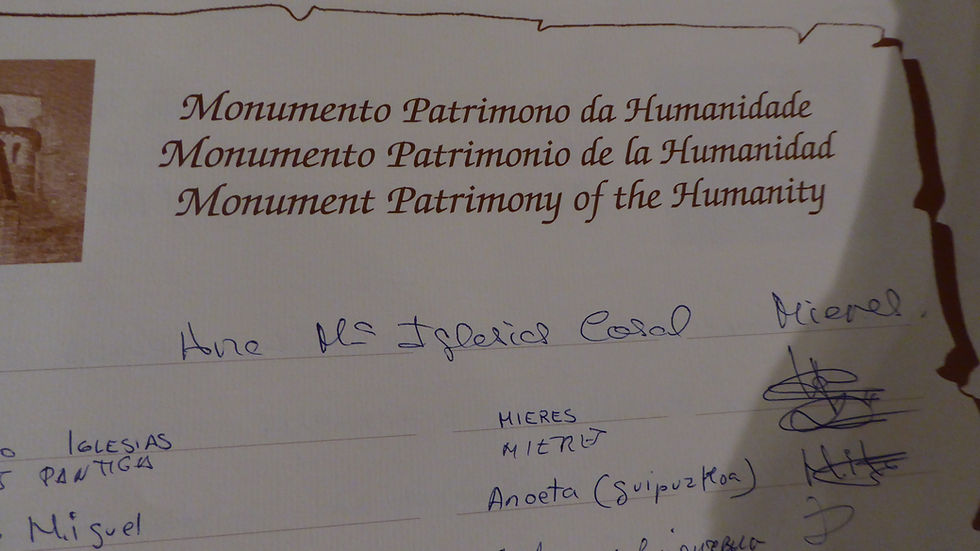 Monumento Patrimono da Humanidade
Monumento Patrimonio de la Humanidad
Monument Patrimony of the Humanity
Ana Mª Iglesias Casal Mieres.
IGLESIAS MIERES
PANTIGA MIERES
Miguel Anoeta (Guipuzkoa)